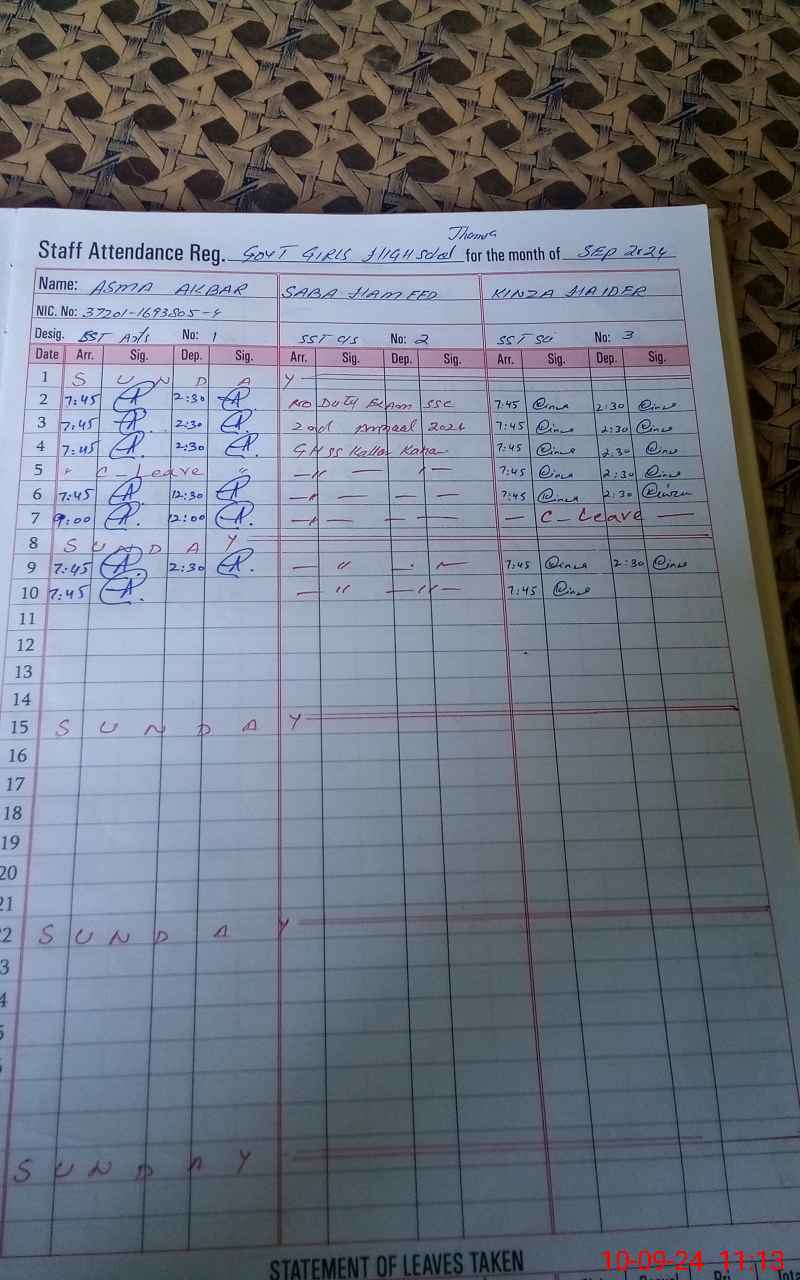 Jhamra
Staff Attendance Reg. GOVT GIRLS HIGH School for the month of SEP 2024
Name: ASMA AKBAR SABA HAMEED KINZA HAIDER
NIC. No: 37201-1693805-4
Desig. EST Arts No: 1 SST C/S No: 2 SST Sci No: 3
Date Arr. Sig. Dep. Sig. Arr. Sig. Dep. Sig. Arr. Sig. Dep. Sig.
1 S U N D A Y
2 7:45 2:30 Duty Exam SSC 7:45 2:30
3 7:45 2:30 2nd Annual 2024 7:45 2:30
4 7:45 2:30 GHSS Kallar Kahar 7:45 2:30
5 " C-Leave " — " — " — 7:45 2:30
6 7:45 12:30 — " — — — 7:45 2:30
7 9:00 12:00 — " — — — — C-Leave —
8 S U N D A Y
9 7:45 2:30 — " — — 7:45 2:30
10 7:45 — " — " — 7:45
11
12
13
14
15 S U N D A Y
16
17
18
19
20
21
2 S U N D A Y
3
4
S U N D A Y
STATEMENT OF LEAVES TAKEN
10-09-24 11:13